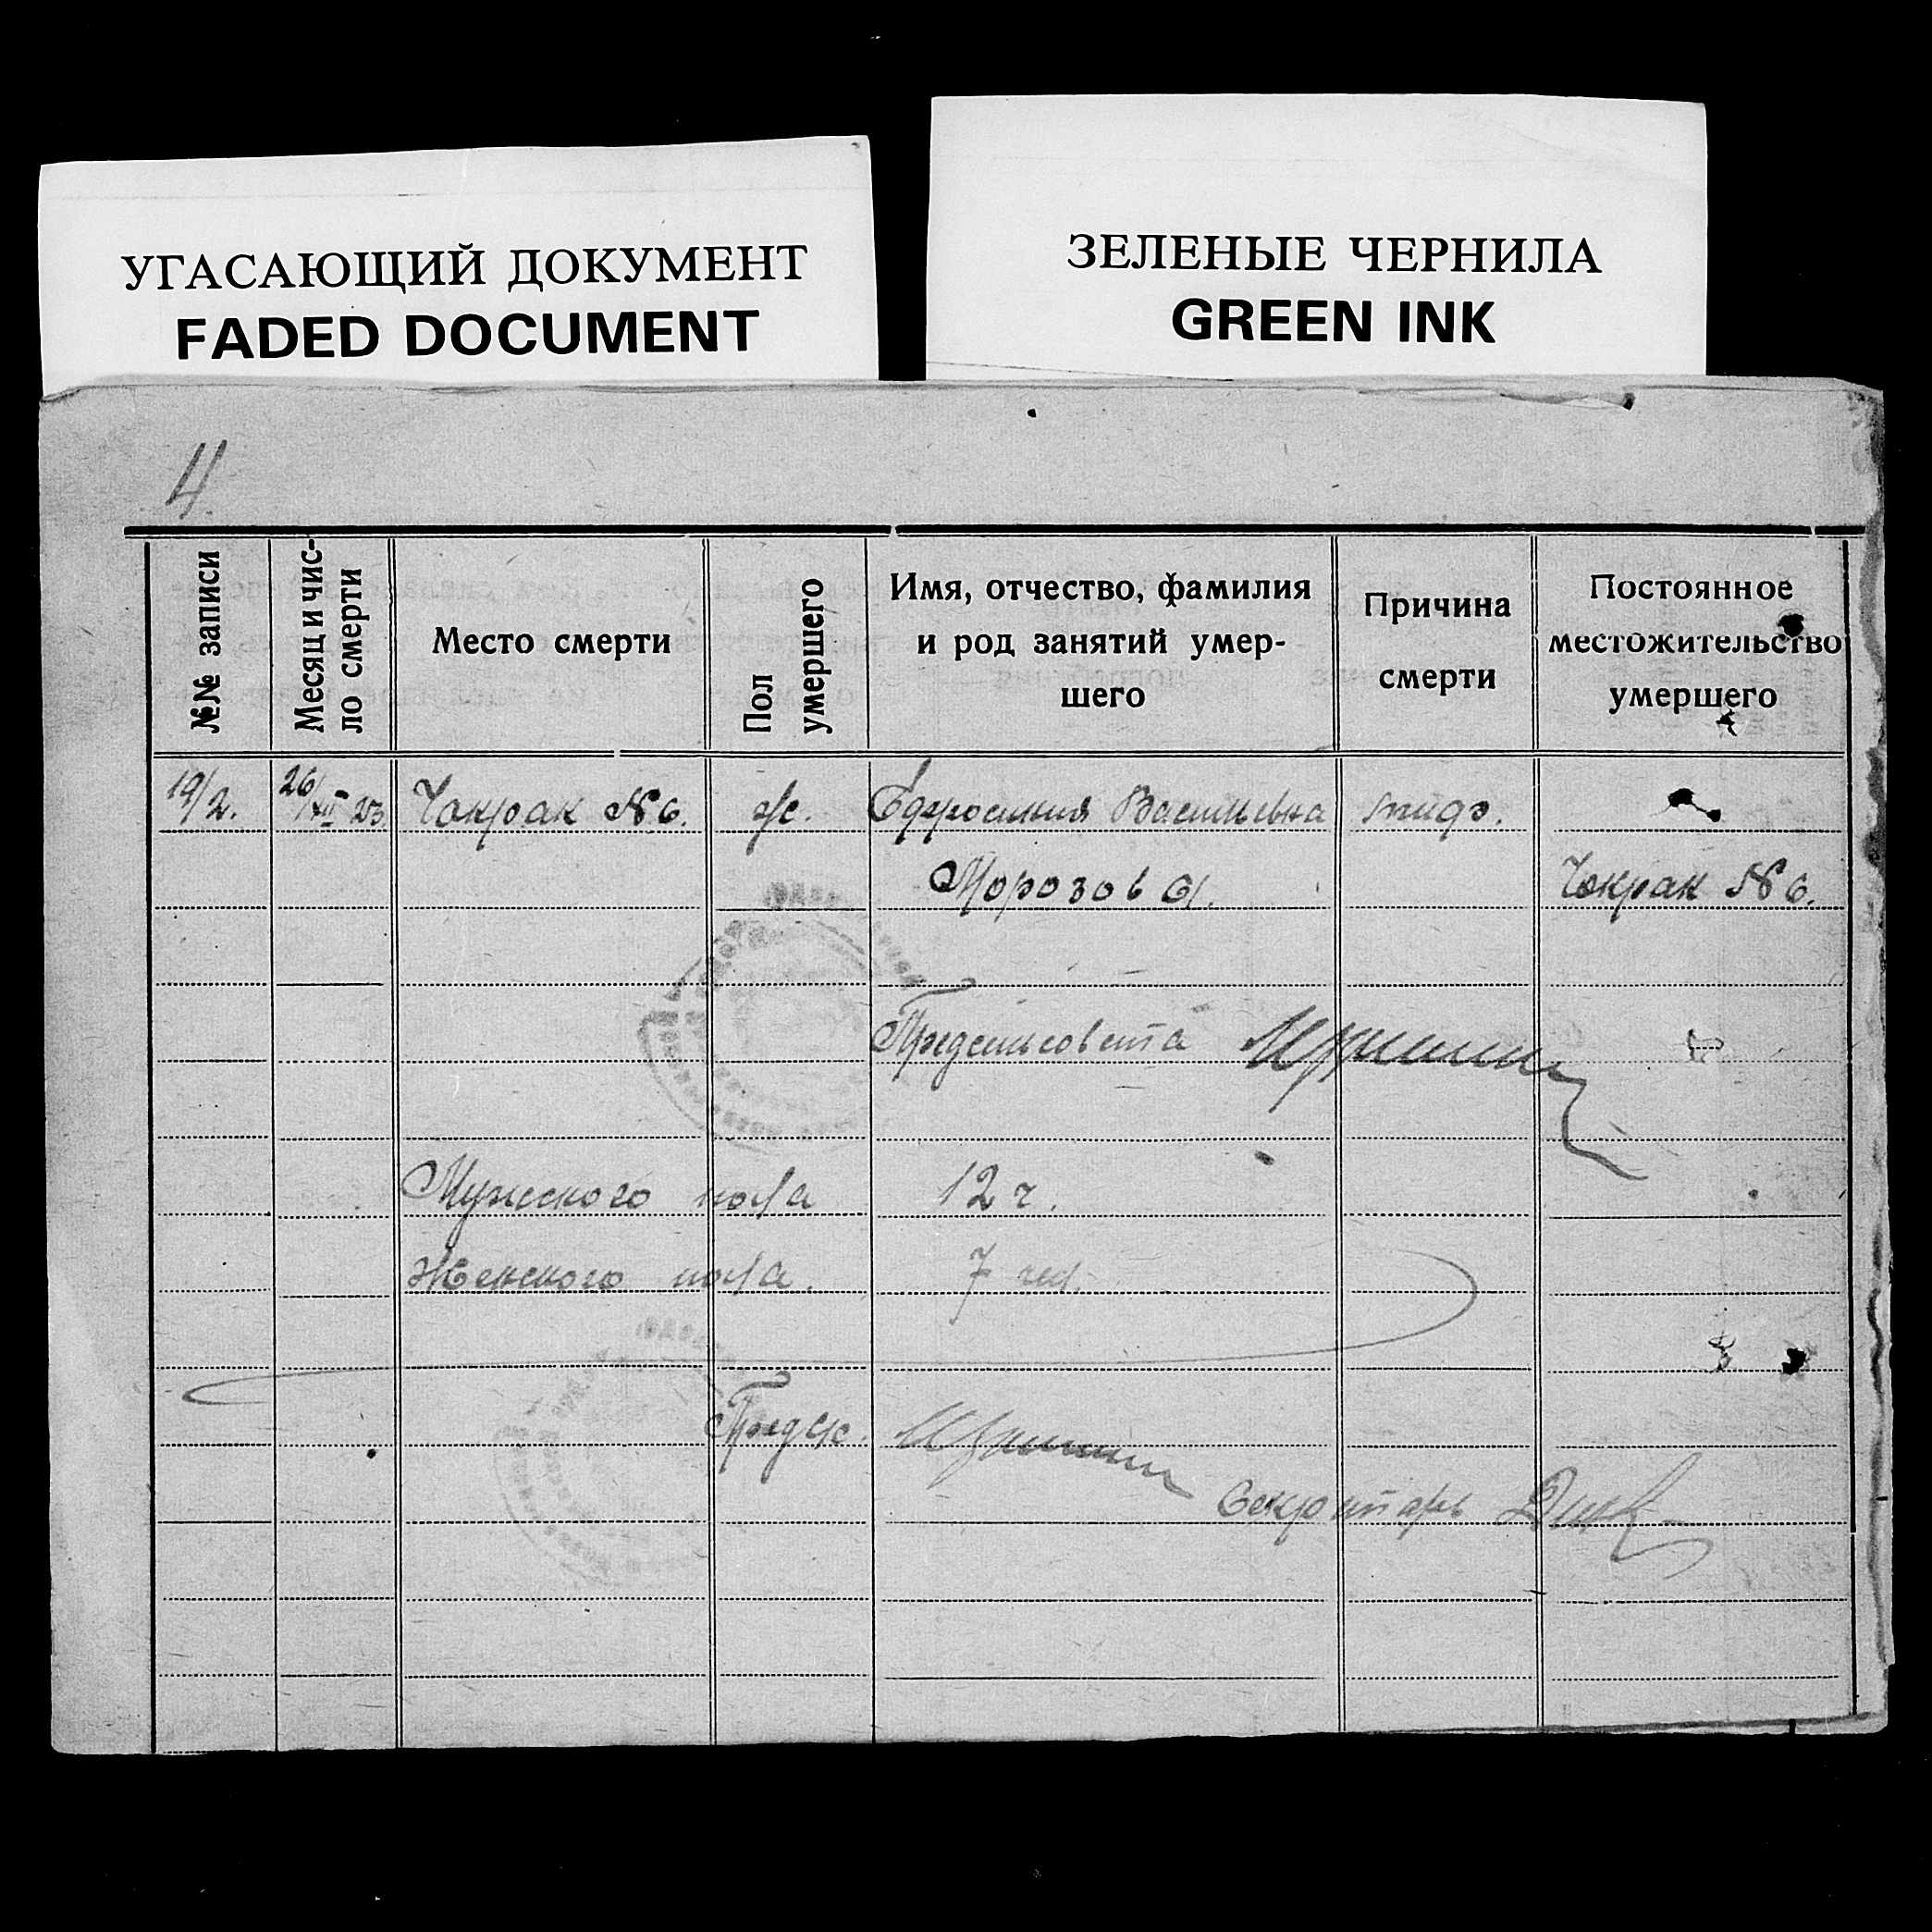 УГАСАЮЩИЙ ДОКУМЕНТ
FADED DOCUMENT
ЗЕЛЕНЫЕ ЧЕРНИЛА
GREEN INK
4.
№№ записи
Месяц и чис-
ло смерти
Место смерти
Пол
умершего
Имя, отчество, фамилия
и род занятий умер-
шего
Причина
смерти
Постоянное
местожительство
умершего
19/2. 26/XII 23 Чокрак № 6. ж. Ефросиния Васильевна тиф.
Морозова. Чокрак № 6.
Предсельсовета
Мужского пола 12 ч.
Женского пола. 7 чел.
Предс.
Секретарь